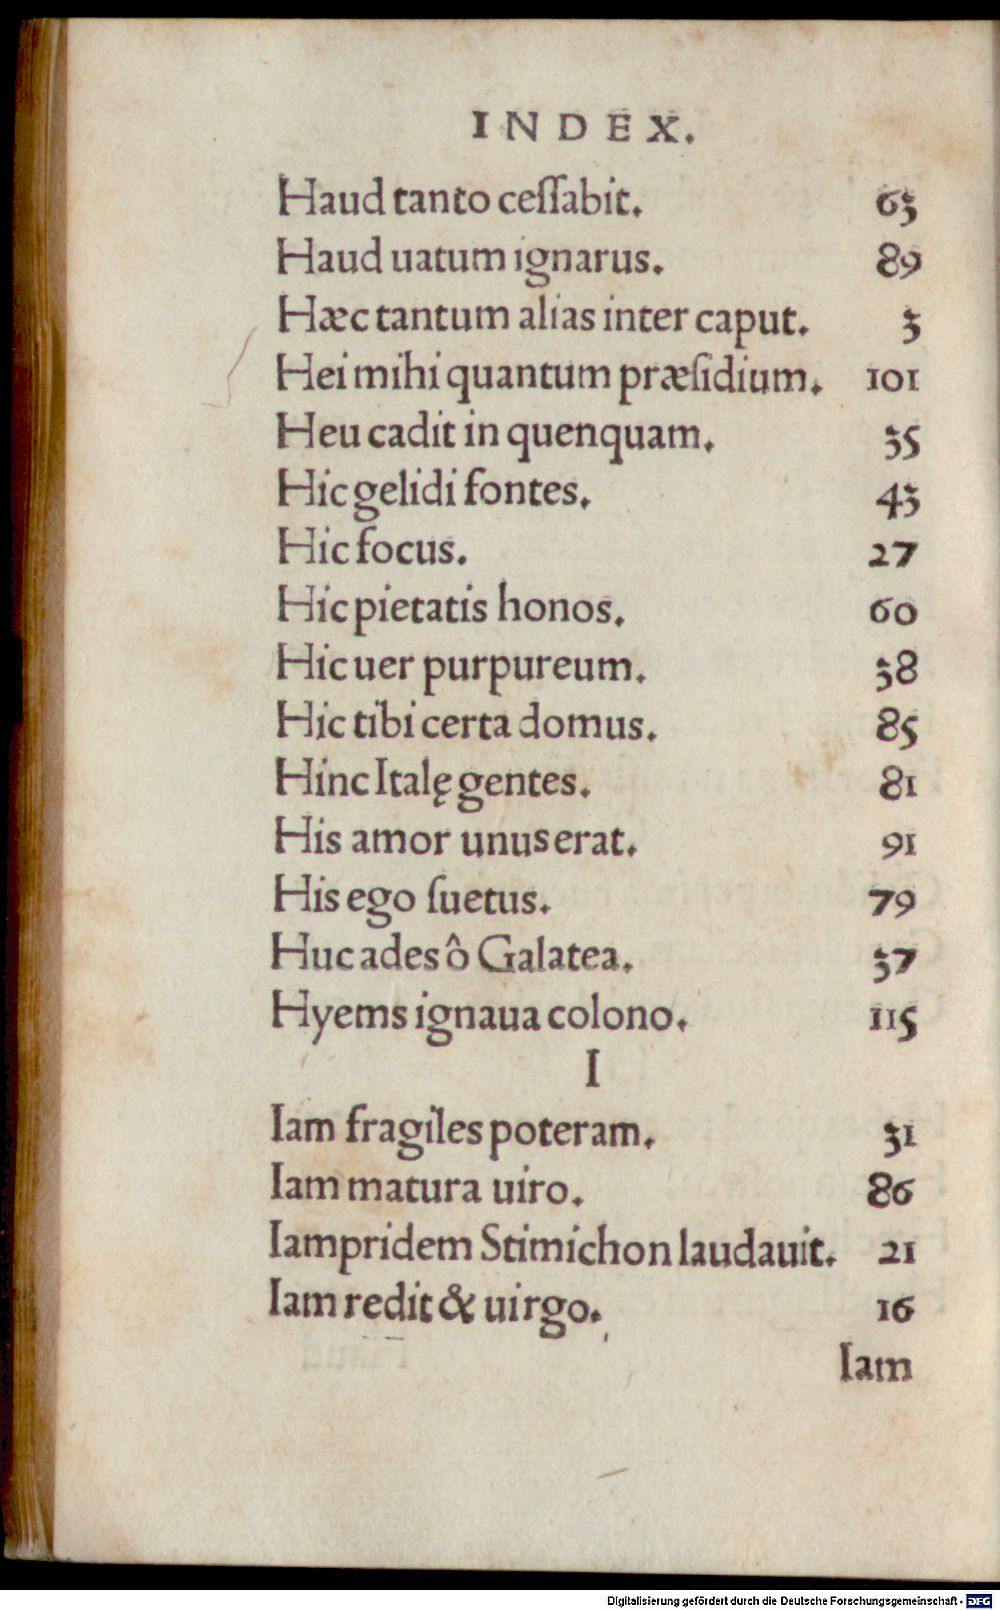 INDEX.
Haud tanto ceſſabit. 63
Haud uatum ignarus. 89
Hæc tantum alias inter caput. 3
Hei mihi quantum præſidium. 101
Heu cadit in quenquam. 35
Hic gelidi fontes. 43
Hic focus. 27
Hic pietatis honos. 60
Hic uer purpureum. 38
Hic tibi certa domus. 85
Hinc Italę gentes. 81
His amor unus erat. 91
His ego ſuetus. 79
Huc ades ô Galatea. 37
Hyems ignaua colono. 115
I
Iam fragiles poteram. 31
Iam matura uiro. 86
Iampridem Stimichon laudauit. 21
Iam redit & uirgo. 16
Iam
Digitalisierung gefördert durch die Deutsche Forschungsgemeinschaft - DFG